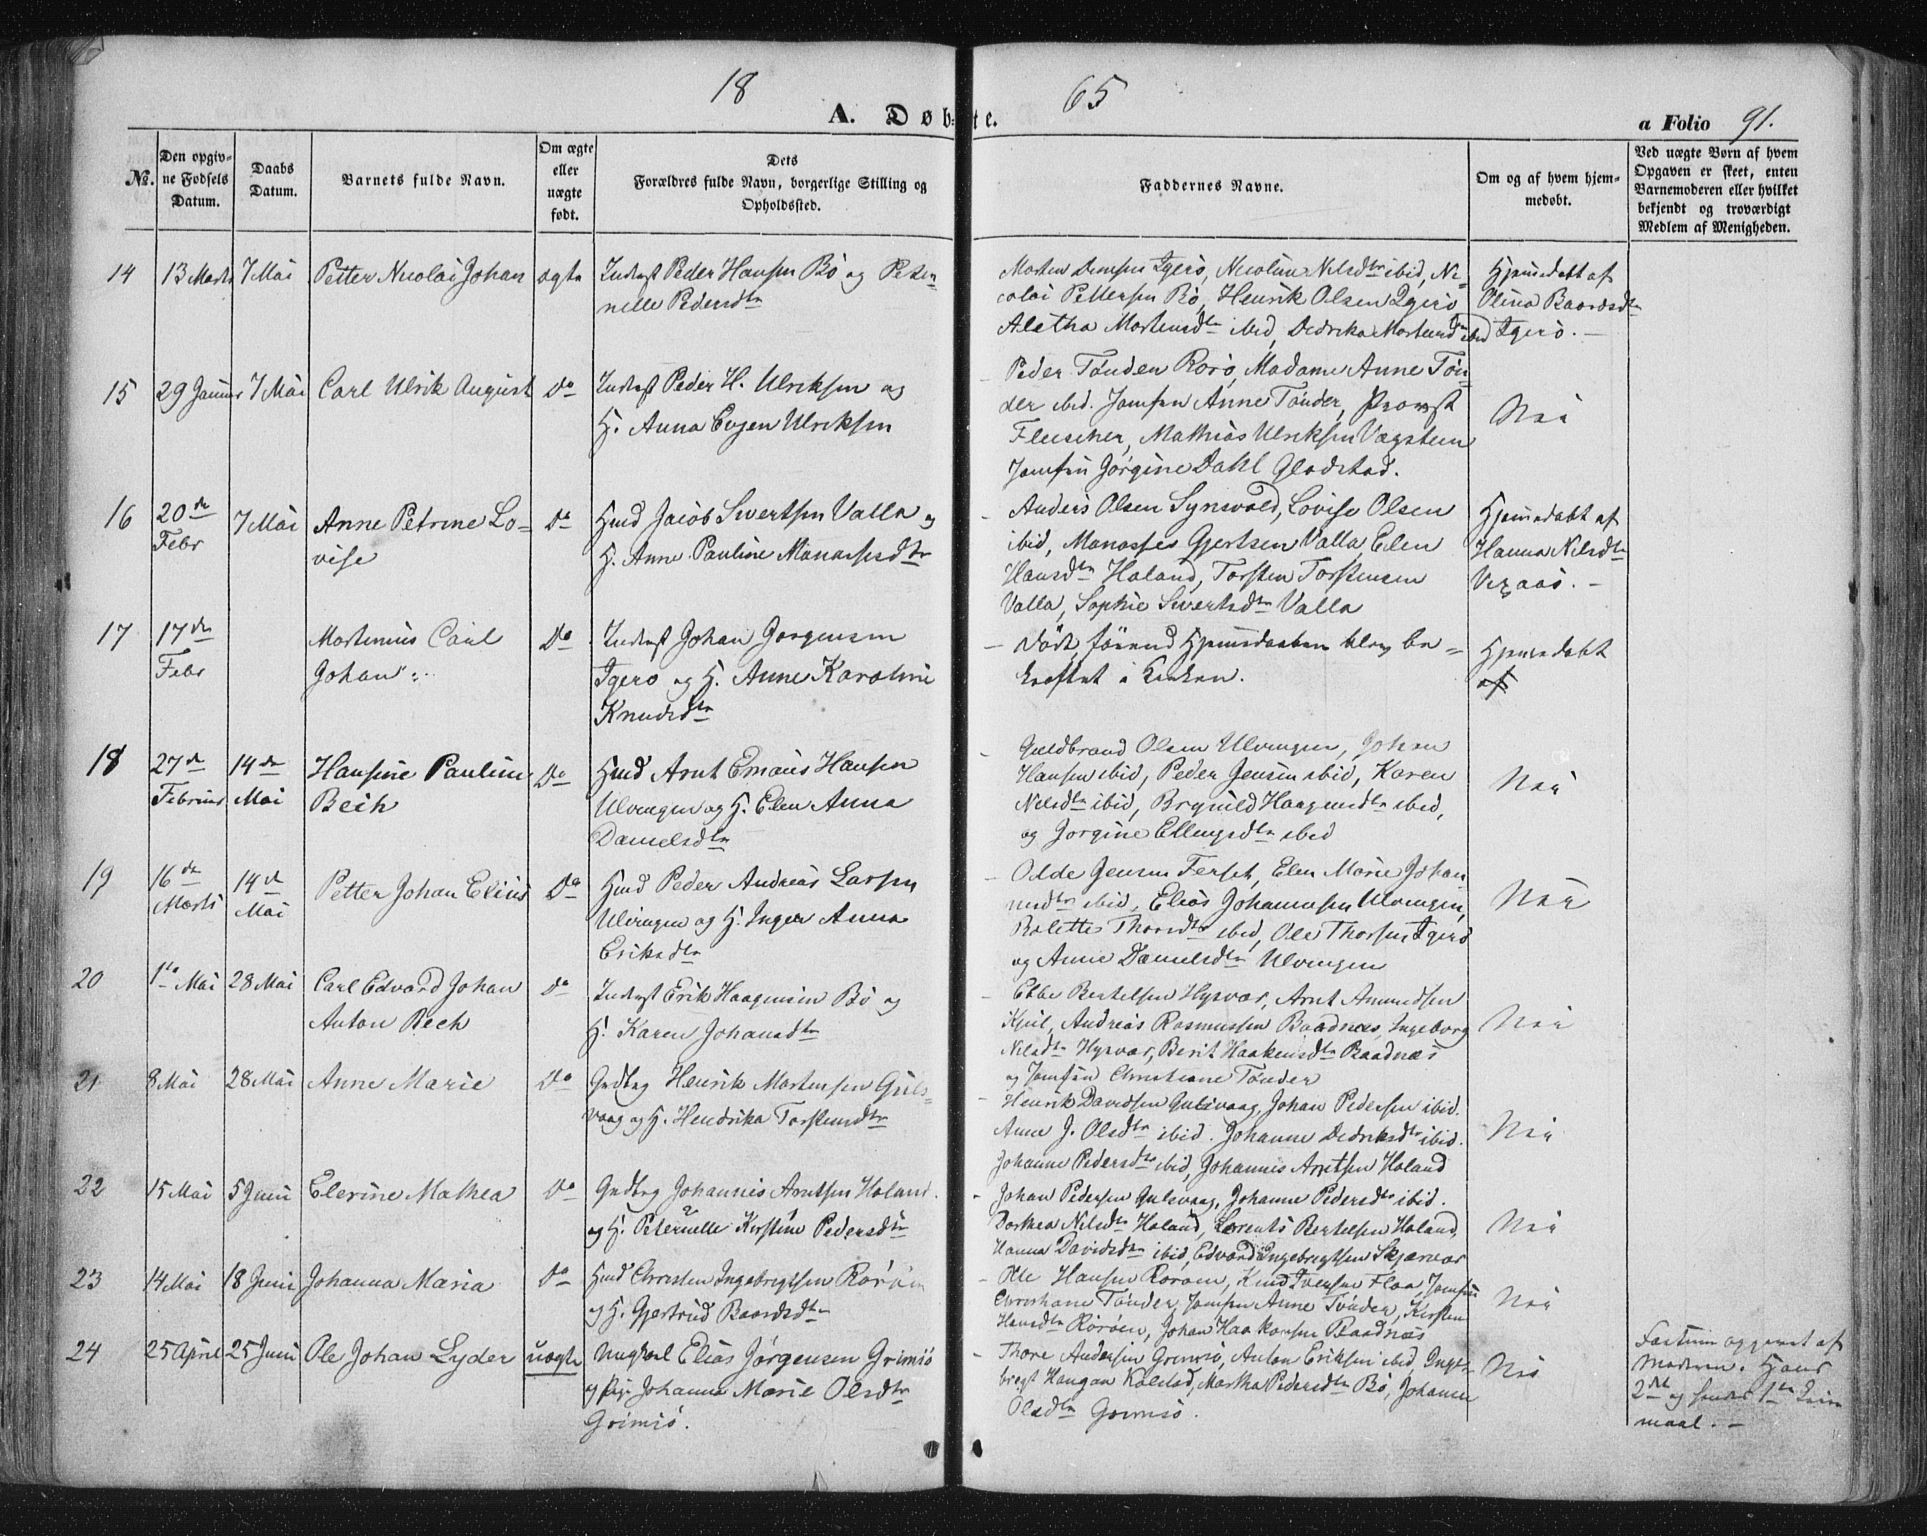 18 65
A. Døbte.
a Folio 91.
No.
Den opgiv-
ne Fødsels
Datum.
Daabs
Datum.
Barnets fulde Navn.
Om ægte
eller
uægte
født.
Dets
Forældres fulde Navn, borgerlige Stilling og
Opholdssted.
Faddernes Navne.
Om og af hvem hjem-
medøbt.
Ved uægte Børn af hvem
Opgaven er skeet, enten
Barnemoderen eller hvilket
bekjendt og troværdigt
Medlem af Menigheden.
14 13 Marts 7 Mai Petter Nicolai Johan ægte Inderst Peder Hansen Bö og Peter-
nelle Pedersdtr
Morten Jensen Igerö, Nicoline Nilsdtr ibid, Ni-
colai Pettersen Bö, Henrik Olsen Igerö
Aletha Mortensdtr ibid, Dedrika Mortensdtr ibid
Hjemedøbt af
Olina Baardsdtr
Igerö. –
15 29 Januar 7 Mai Carl Ulrik August Do Inderst Peder H. Ulriksen og
H. Anna Evgen Ulriksen
Peder Tönder Rörö, Madame Anne Tön-
der ibid. Jomfru Anne Tönder, Provst
Fleischer, Mathias Ulriksen Vægsteen
Jomfru Jörgine Dahl Gladstad.
Nei
16 20de
Febr
7 Mai Anne Petrine Lo-
vise
Do Hmd Jacob Sivertsen Valla og
H. Anne Pauline Manassesdtr
Anders Olsen Synsvold, Lovise Olsen
ibid, Manasses Gjertsen Valla, Elen
Hansdtr Haland, Torsten Torstensen
Valla, Sophie Sivertsdtr Valla
Hjemedøbt af
Hanna Nilsdtr
Vegaas. –
17 17de
Febr
Mortenius Carl
Johan
Do Inderst Johan Jörgensen
Igerö og H. Anne Karoline
Knudsdtr
– Död, förend Hjemedaaben blev be-
kræftet i Kirken.
Hjemedøbt
af
18 27de
Februar
14de
Mai
Hansine Pauline
Bech
Do Hmd Arnt Emaus Hansen
Ulvingen og H. Elen Anna
Danielsdtr
Guldbrand Olsen Ulvingen, Johan
Hansen ibid, Peder Jensen ibid, Karen
Nilsdtr ibid, Brynild Haagensdtr ibid,
og Jörgine Ellingsdtr ibid
Nei
19 16de
Marts
14de
Mai
Petter Johan Elius Do Hmd Peder Andreas Larsen
Ulvingen og H. Inger Anna
Eriksdtr
Olde Jensen Ferset, Elen Marie Johan-
nesdtr ibid, Elias Johannesen Ulvingen,
Rolette Thorsdtr ibid, Ole Thorsen Igerö
og Anne Danielsdtr Ulvingen
Nei
20 1ste Mai 28 Mai Carl Edvard Johan
Anton Bech
Do Inderst Erik Haagensen Bö og
H. Karen Johansdtr
Ebbe Bertelsen Hysvær, Arnt Amundsen
Kjul, Andreas Rasmussen Baadnæs, Ingeborg
Nilsdtr Hysvær, Berit Haakensdtr Baadnæs
og Jomfru Christiane Tönder
Nei
21 8 Mai 28 Mai Anne Marie Do Gudbrg Henrik Mortensen Guls-
vaag og H. Hendrika Torstensdtr
Henrik Davidsen Gulsvaag, Johan Pedersen ibid.
Anne J. Olsdtr ibid. Johanne Dedriksdtr ibid.
Johanne Pedersdtr ibid, Johannes Arntsen Holand
Nei
22 15 Mai 5 Juni Elerine Mathea Do Gudbrg Johannes Arntsen Holand.
og H. Peternelle Kirstine Pedersdtr
Johan Pedersen Gulsvaag, Johanne Pedersdtr ibid.
Dorthea Nilsdtr Holand, Lorents Bertelsen Holand,
Hanna Davidsdtr ibid, Edvard Ingebregtsen Skjærvær
Nei
23 14 Mai 18 Juni Johanna Maria Do Hmd Christen Ingebregtsen Röröen
og H. Gjertrud Baardsdtr
Ole Hansen Röröen, Knud Iversen Flaa, Jomfru
Christiane Tönder, Jomfru Anne Tönder, Kirsten
Hansdtr Röröen, Johan Haakonsen Baadnæs
Nei
24 25 April 25 Juni Ole Johan Lyder uægte Ungkarl Elias Jörgensen Grimsö
og Pige Johanna Marie Olsdtr
Grimsö.
Thore Andersen Grimsö, Anton Eriksen ibid, Inge-
bregt Haugan Kolstad, Martha Pedersdtr Bö, Johanna
Olsdtr Grimsö.
Nei
Farturn opgivet af
Moderen. Hans
2det og hendes 1ste Leier-
maal. –